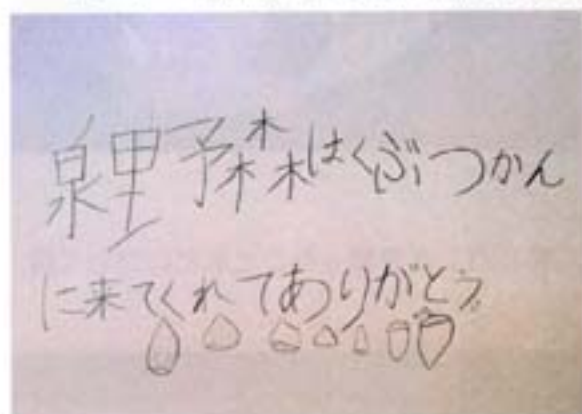 泉里予森はくぶつかん
に来てくれてありがとう